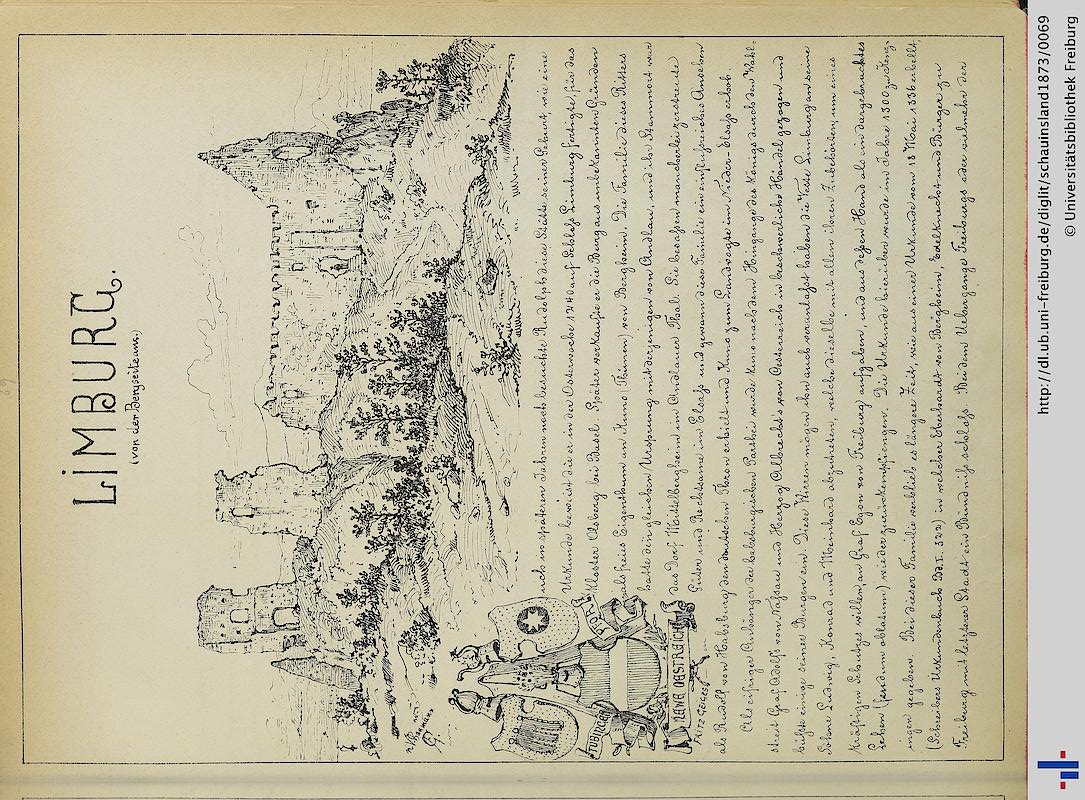 LIMBURG.
(von der Bergseite aus.)
auch in spätern Jahren noch besuchte Rudolph diese Stätte seiner Geburt wie eine
Urkunde beweist die er in der Osterwoche 1240 auf Schloss Limburg fertigte, für das
Kloster Olsberg bei Basel. Später verkaufte er die Burg aus unbekannten Gründen
als freies Eigenthum an Kuno von Bergheim. Die Familie dieses Ritters
hatte den gleichen Ursprung mit derjenigen von Andlau, und ihr Stammort war
das Dorf Mittelbergheim im Andlauer Thal. Sie besassen mancherlei zerstreute
Güter und Rechtsame im Elsass und gewann diese Familie ein einflussreiches Ansehen
als Rudolf von Habsburg den deutschen Thron erhielt und Kuno zum Landvogte im Nieder-Elsass erhob.
Als eifriger Anhänger der habsburgischen Parthie wurde Kuno nach dem Hingange des Königs durch den Wahl-
streit Graf Adolfs von Nassau und Herzog Albrecht's von Oesterreich in beschwerliche Händel gezogen und
büsste einige seiner Burgen ein. Diese Wirren mögen ihn auch veranlasst haben die Veste Limburg an seine
Söhne Ludwig, Konrad und Meinhard abzutreten, welche dieselbe mit allen ihren Zubehörten, um eines
kräftigen Schutzes willen, an Graf Egon von Freiburg aufgaben, und aus dessen Hand als ein dargebrachtes
Lehen (feudum oblatum) wieder zurückempfiengen. Die Urkunde hierüber wurde im Jahre 1300 zu
ingen gegeben. Bei dieser Familie verblieb es längere Zeit, wie aus einer Urkunde vom 18 Mai 1336 erhellt,
(Schreibers Urkundenbuch Bd. I. ) in welcher Eberhardt von Bergheim, Edelknecht und Bürger zu
Freiburg mit letzterer Stadt ein Bündniss schloss. Bei dem Uebergange Freiburgs oder vielmehr der
TÜBINGEN
NEWE OESTREICH
FRITZ GEGES
http://dl.ub.uni-freiburg.de/diglit/schauinsland1873/0069
© Universitätsbibliothek Freiburg